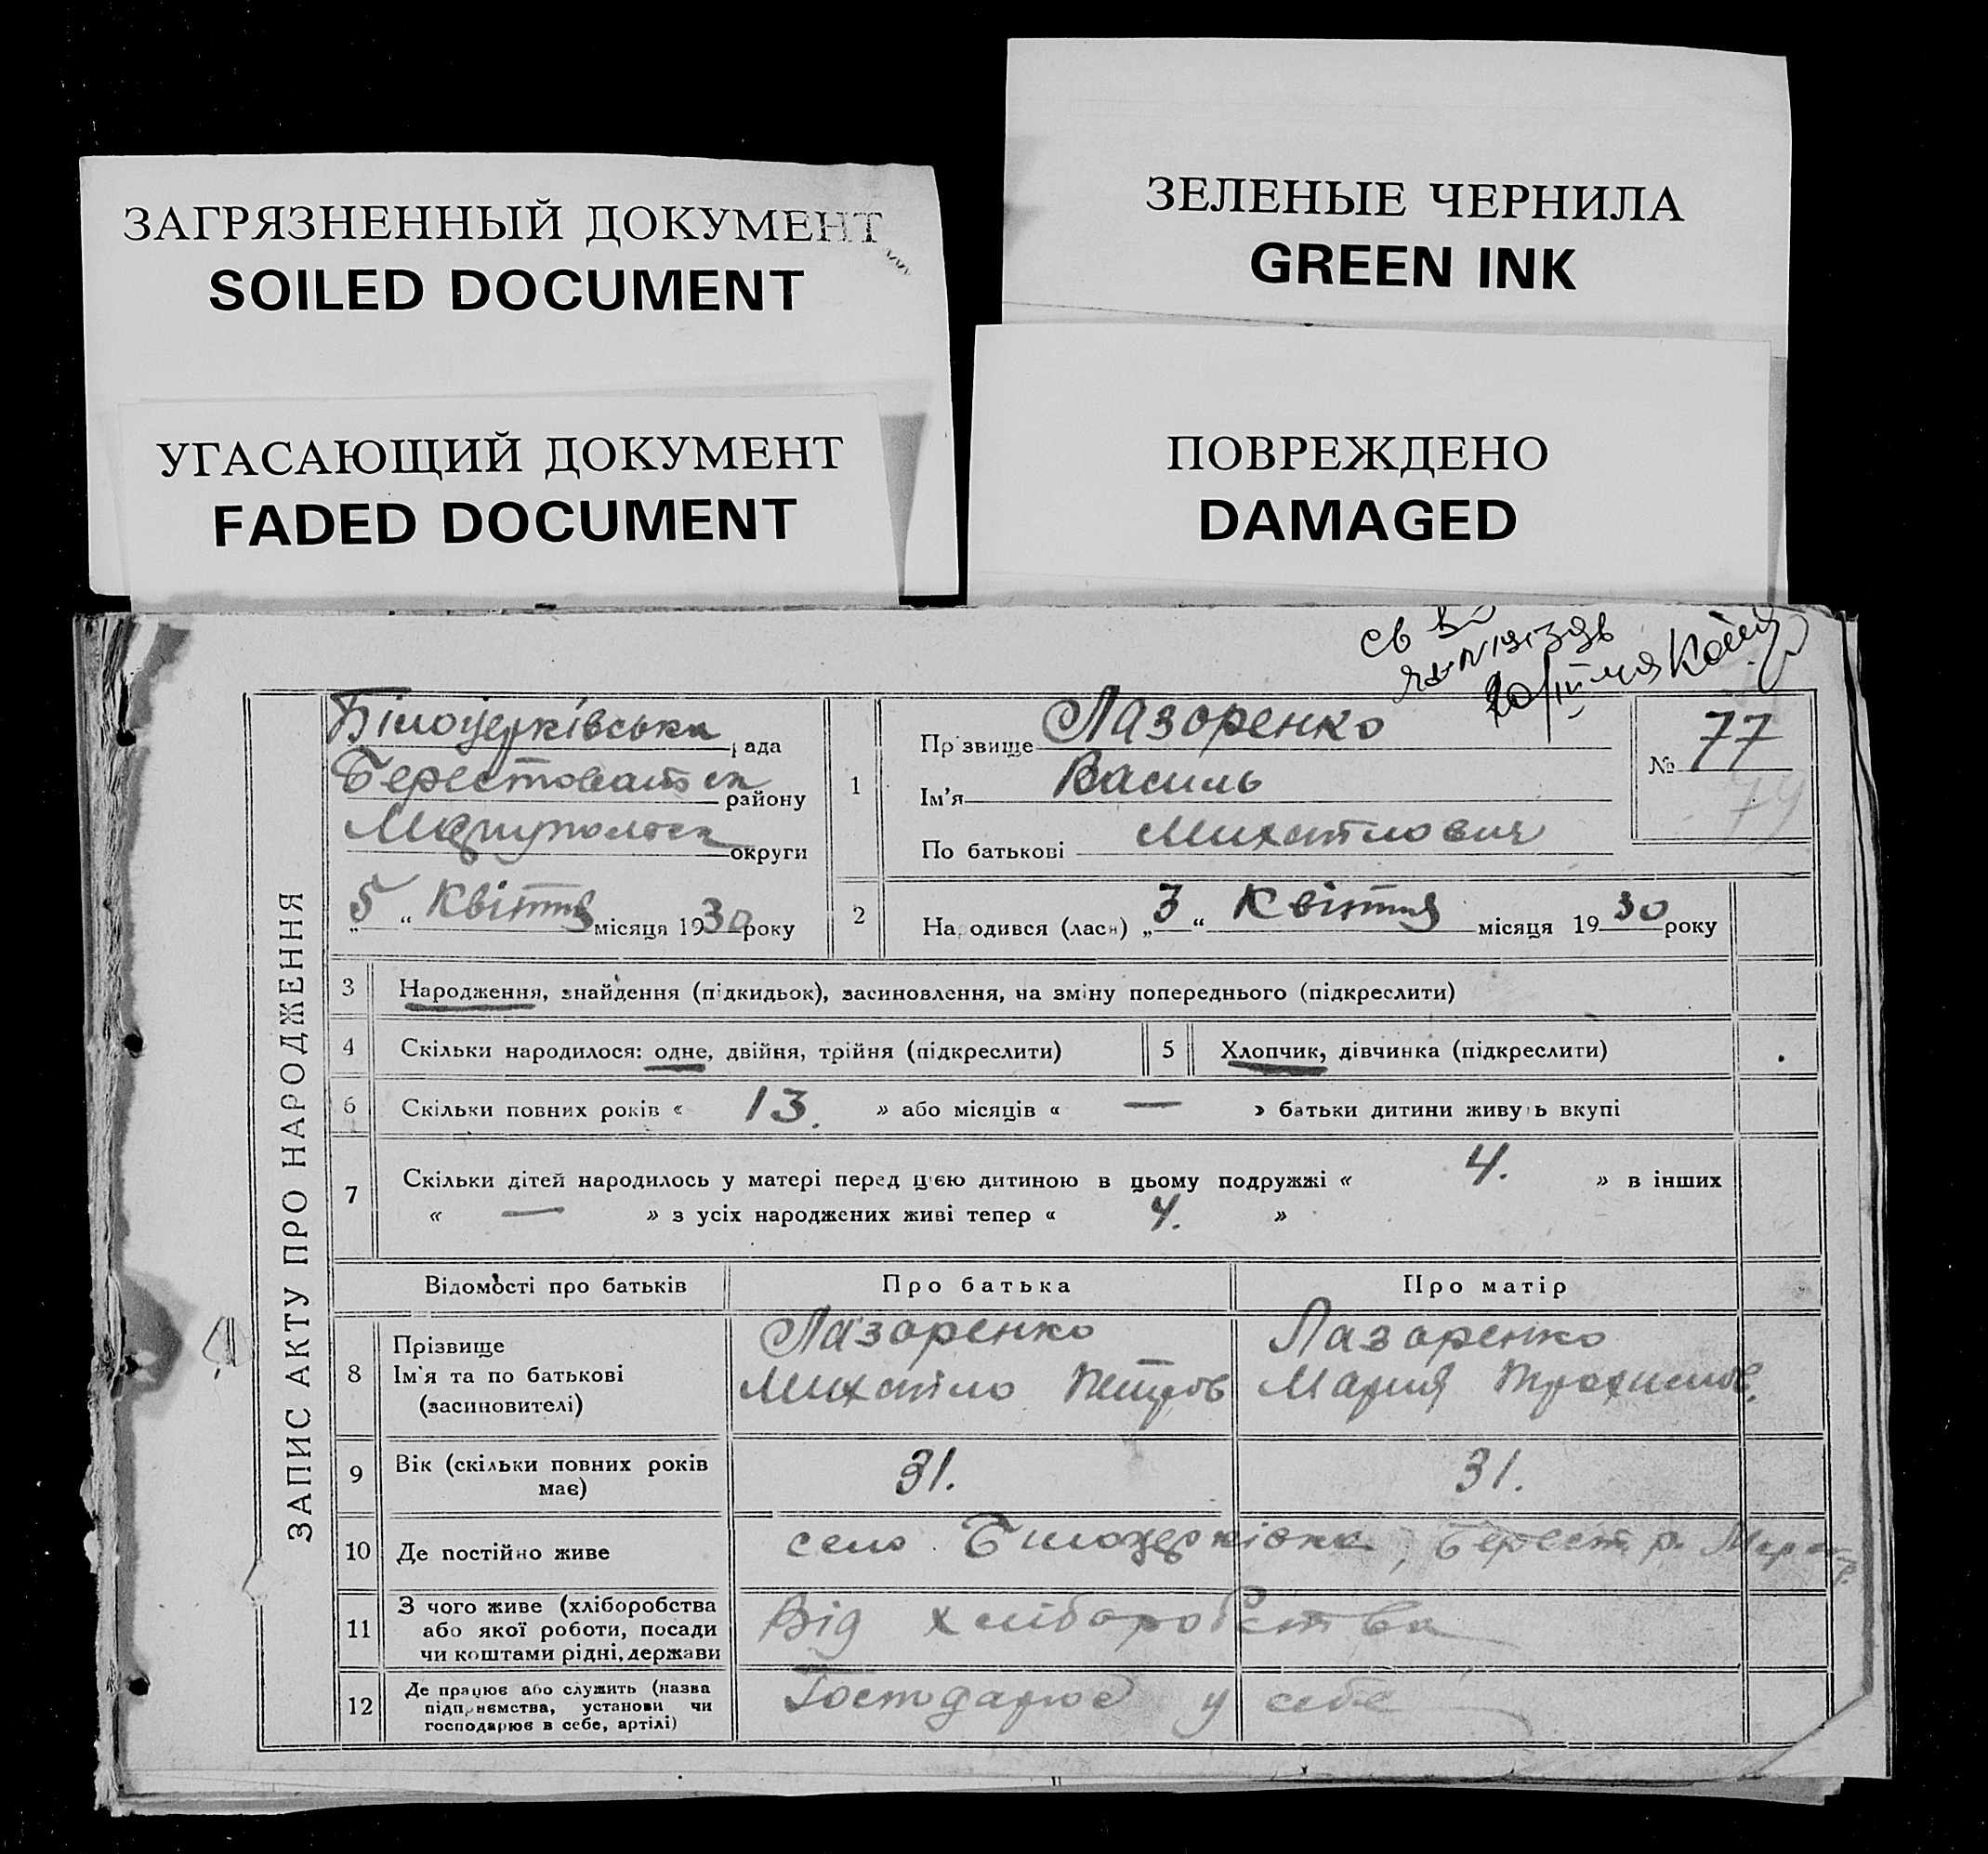 ЗАГРЯЗНЕННЫЙ ДОКУМЕНТ
SOILED DOCUMENT
УГАСАЮЩИЙ ДОКУМЕНТ
FADED DOCUMENT
ЗЕЛЕНЫЕ ЧЕРНИЛА
GREEN INK
ПОВРЕЖДЕНО
DAMAGED
ЗАПИС АКТУ ПРО НАРОДЖЕННЯ
Білоцерківська рада
району
округи
„5“ Квітня місяця 1930 року
1
Прізвище Лазоренко
Ім'я Василь
По батькові Михайлович
№ 77
79
2 Народився (лася) „3“ Квітня місяця 1930 року
3 Народження, знайдення (підкидьок), засиновлення, на зміну попереднього (підкреслити)
4 Скільки народилося: одне, двійня, трійня (підкреслити)
5 Хлопчик, дівчинка (підкреслити)
6 Скільки повних років « 13. » або місяців « — » батьки дитини живуть вкупі
7 Скільки дітей народилось у матері перед цією дитиною в цьому подружжі « 4. » в інших
« — » з усіх народжених живі тепер « 4. »
Відомості про батьків Про батька Про матір
8 Прізвище
Ім'я та по батькові
(засиновителі)
Лазоренко
Михайло Петров
Лазоренко
Мария Трохимов.
9 Вік (скільки повних років
має)
31. 31.
10 Де постійно живе село Білоцерківка, Берест. р.
11 З чого живе (хліборобства
або якої роботи, посади
чи коштами рідні, держави
Від хліборобства
12 Де працює або служить (назва
підприємства, установи чи
господарює в себе, артілі)
Господарює у себе